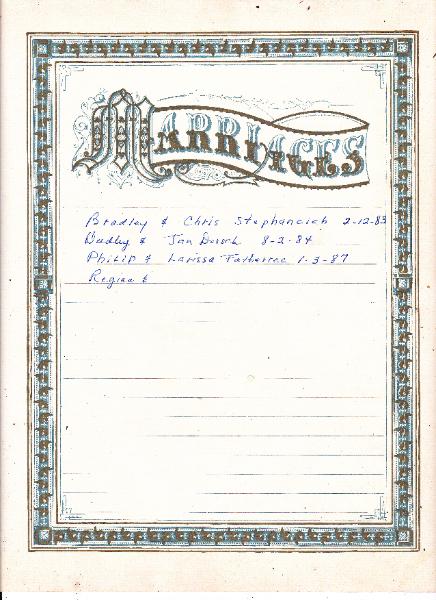 MARRIAGES
Bradley & Chris Stephancich 2-12-83
Dudley & Jan Dorsch 8-2-84
Philip & Larissa Fatherree 1-3-87
Regina &